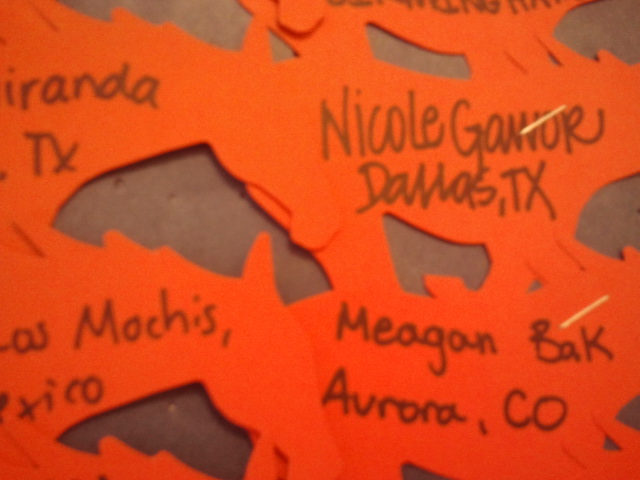 iranda
, TX
Nicole Gawor
Dallas, TX
Los Mochis,
exico
Meagan Bak
Aurora, CO